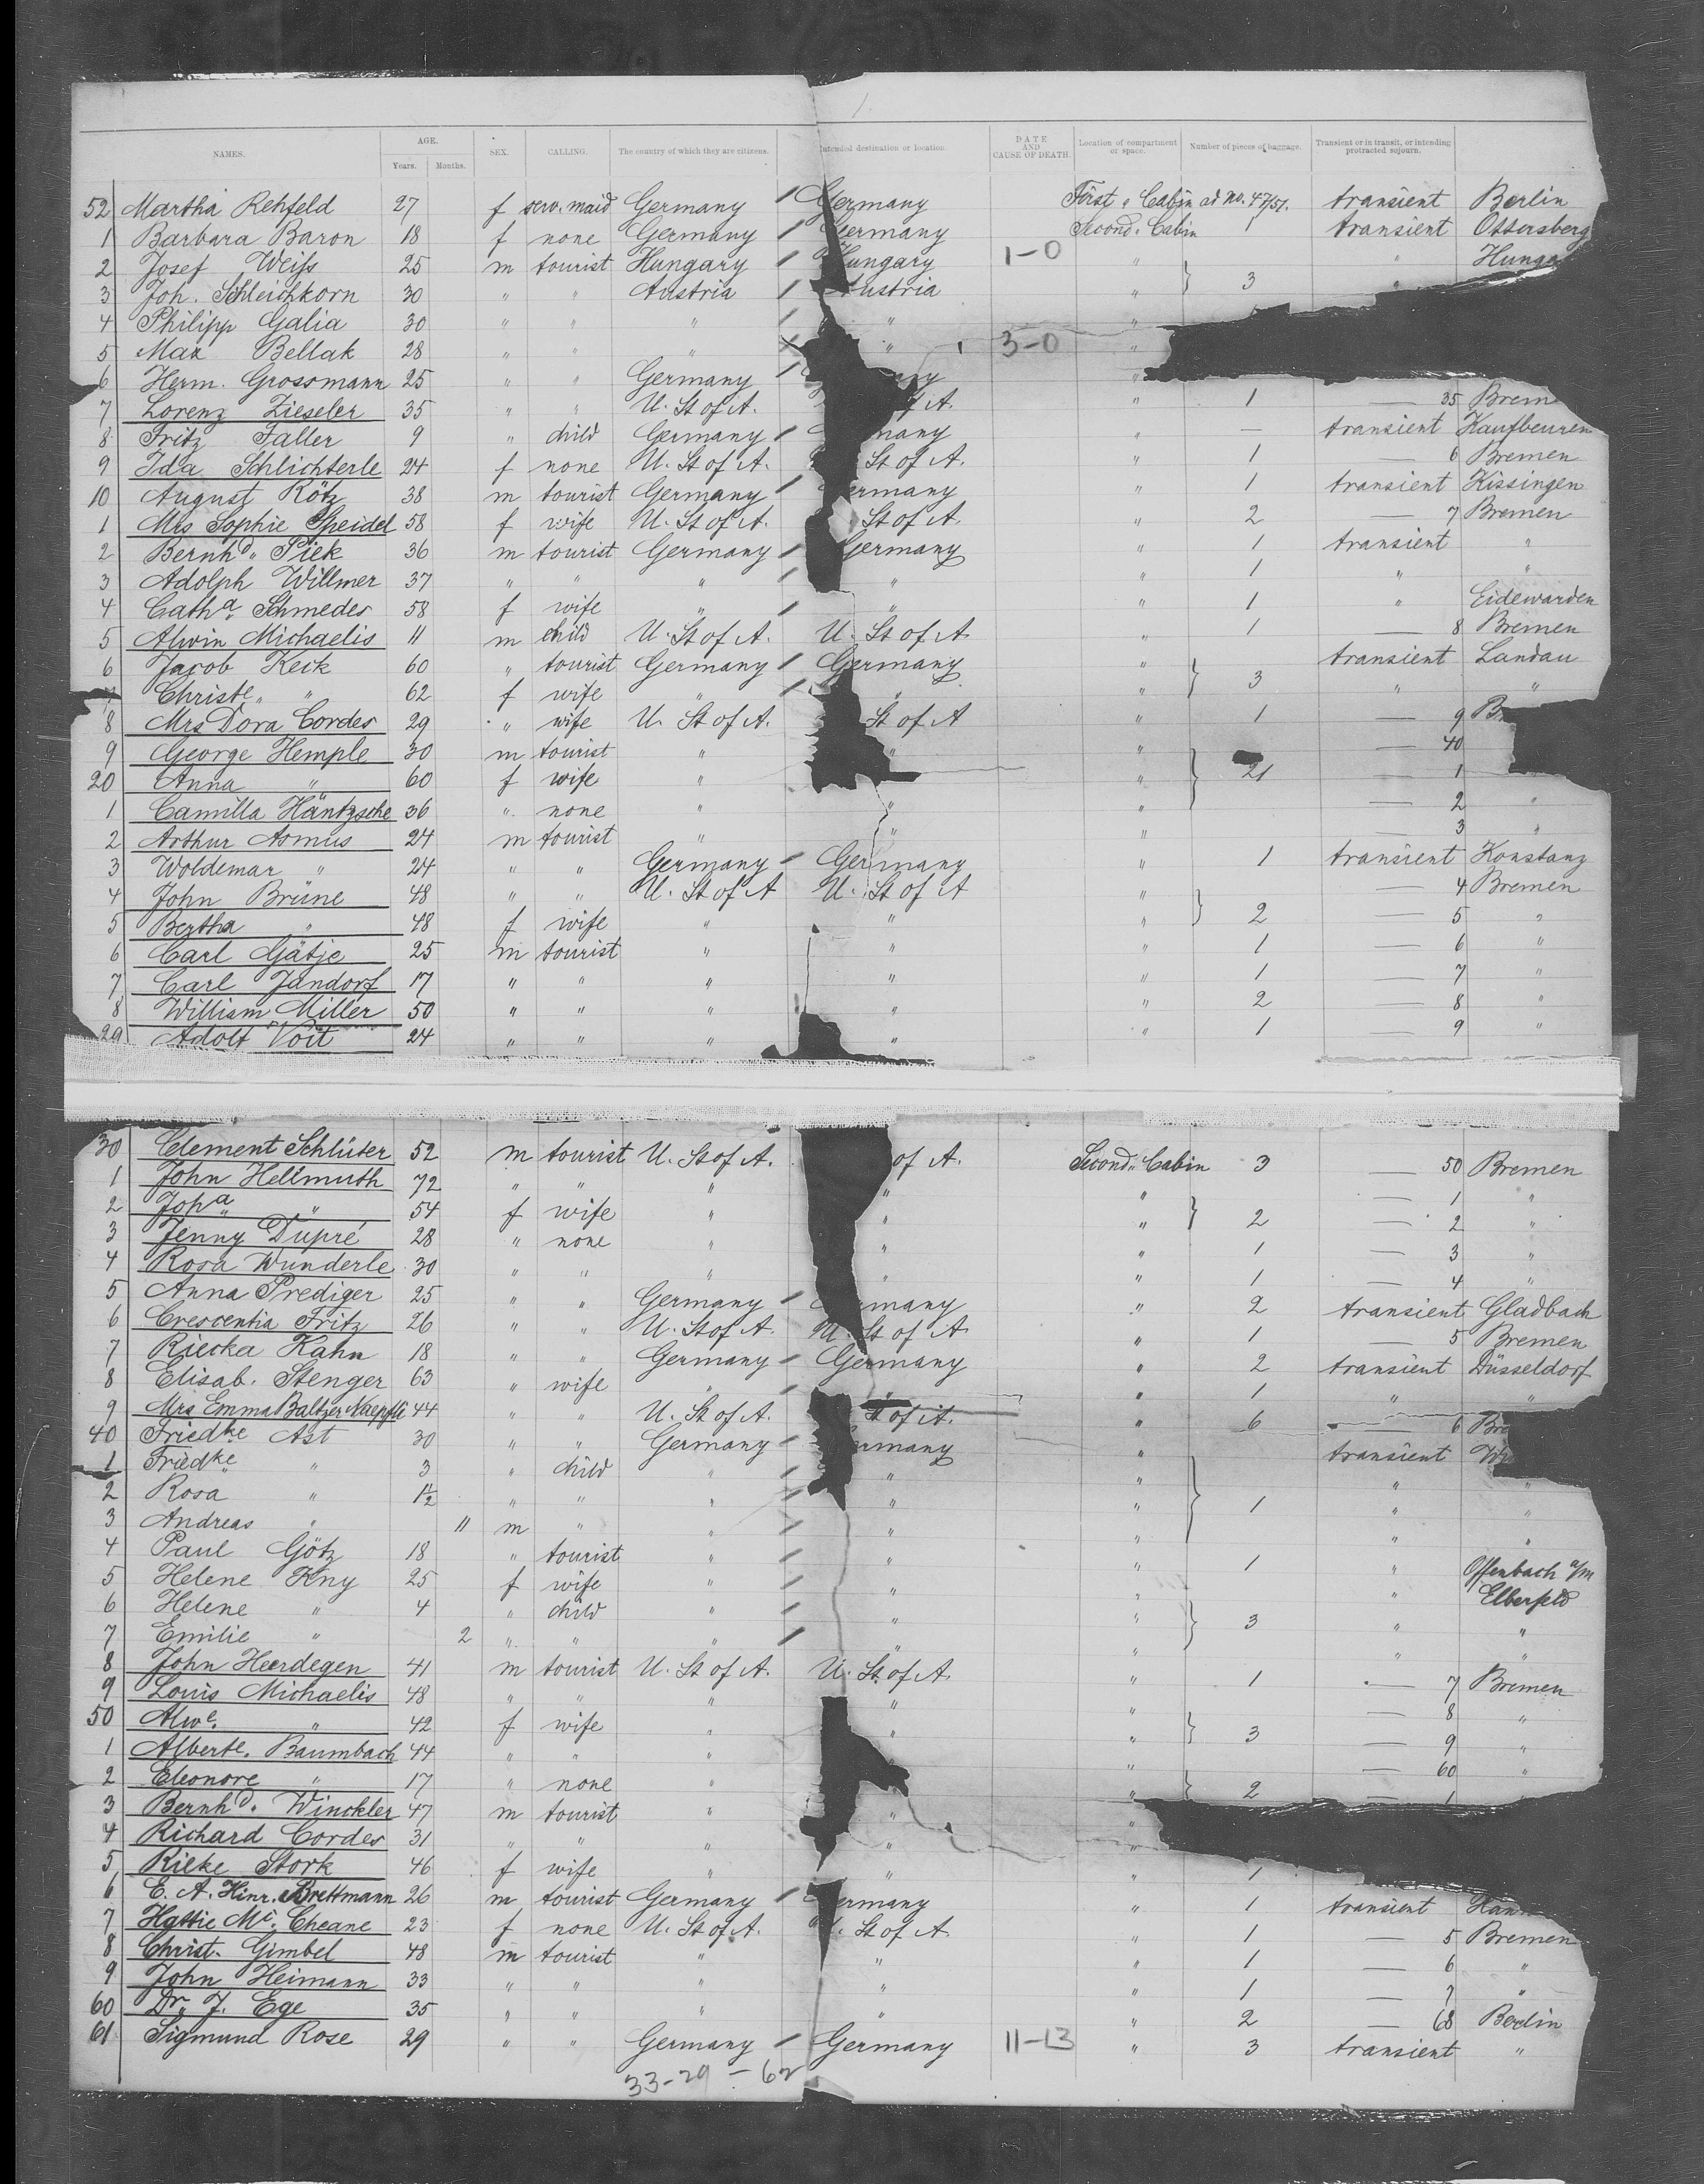 1.
NAMES. AGE. Years. Months. SEX. CALLING. The country of which they are citizens. Intended destination or location. DATE AND CAUSE OF DEATH. Location of compartment or space. Number of pieces of baggage. Transient or in transit, or intending protracted sojourn.
52 Martha Rehfeld 27 f serv. maid Germany / Germany First " Cabin ad No. 47/51. transient Berlin
1 Barbara Baron 18 f none Germany / Germany Second " Cabin 1 transient Ottersberg
2 Josef Weiss 25 m tourist Hungary / Hungary 1-0 " } 3 "
3 Joh. Schleichkorn 30 " " Austria / Austria " "
4 Philipp Galia 30 " " " / " "
5 Max Bellak 28 " " " " 3-0 "
6 Herm. Grossmann 25 " " Germany / "
7 Lorenz Zieseler 35 " " U. St of A. of A. " 1 — 35
8 Fritz Faller 9 " child Germany / " — transient Kaufbeuren
9 Ida Schlichterle 24 f none U. St of A. St of A. " 1 — 6 Bremen
10 August Rötz 38 m tourist Germany / Germany " 1 transient Kissingen
1 Mrs Sophie Speidel 58 f wife U. St of A. St of A. " 2 — 7 Bremen
2 Bernhd. Piek 36 m tourist Germany / Germany " 1 transient "
3 Adolph Willmer 37 " " " / " " 1 " "
4 Catha. Schmedes 58 f wife " / " " 1 " Eidewarden
5 Alwin Michaelis 11 m child U. St of A. U. St of A " 1 — 8 Bremen
6 Jacob Keck 60 " tourist Germany / Germany " } 3 transient Landau
7 Christe. " 62 f wife " / " " " "
8 Mrs Dora Cordes 29 " wife U. St of A. St of A " 1 — 9
9 George Hemple 30 m tourist " " " — 40
20 Anna " 60 f wife " " } 21 — 1
1 Camilla Häntzsche 36 " none " " " — 2 "
2 Arthur Asmus 24 m tourist " " " — 3 "
3 Woldemar " 24 " " Germany / Germany " 1 transient Konstanz
4 John Brüne 48 " " U. St of A U. St of A " — 4 Bremen
5 Bertha " 48 f wife " " " } 2 — 5 "
6 Carl Gätje 25 m tourist " " " 1 — 6 "
7 Carl Jandorf 17 " " " " " 1 — 7 "
8 William Miller 50 " " " " " 2 — 8 "
29 Adolf Voit 24 " " " " " 1 — 9 "
30 Clement Schlüter 52 m tourist U. St of A. of A. Second " Cabin 3 — 50 Bremen
1 John Hellmuth 72 " " " " " — 1 "
2 Joha. " 54 f wife " " " } 2 — 2 "
3 Jenny Dupré 28 " none " " " 1 — 3 "
4 Rosa Wunderle 30 " " " " " 1 — 4 "
5 Anna Prediger 25 " " Germany / Germany " 2 transient Gladbach
6 Crescentia Fritz 26 " " U. St of A. U. St of A " 1 — 5 Bremen
7 Riecka Kahn 18 " " Germany / Germany " 2 transient Düsseldorf
8 Elisab. Stenger 63 " wife " " " 1 " "
9 Mrs Emma Baltzer Kaeppli 44 " " U. St of A. St of A. " 6 — 6
40 Friedke Ast 30 " " Germany / Germany " transient
1 Friedke " 3 " child " / " " " "
2 Rosa " 1½ " " " / " " } 1 " "
3 Andreas " 11 m " " / " " " "
4 Paul Götz 18 " tourist " / " " 1 " Offenbach a/m
5 Helene Kny 25 f wife " / " " " Elberfeld
6 Helene " 4 " child " / " " } 3 " "
7 Emilie " 2 " " " / " " " "
8 John Heerdegen 41 m tourist U. St of A. U. St of A. " 1 — 7 Bremen
9 Louis Michaelis 48 " " " " " — 8 "
50 Alwe. " 42 f wife " " " } 3 — 9 "
1 Alberte. Baumbach 44 " " " " — 60 "
2 Eleonore " 17 " none " " } 2 — 1
3 Bernhd. Winckler 47 m tourist " " "
4 Richard Cordes 31 " " " " "
5 Rieke Stork 46 f wife " " " 1
6 E. A. Hinr. Brettmann 26 m tourist Germany / Germany " 1 transient
7 Hattie Mc. Cheane 23 f none U. St of A. U. St of A " 1 — 5 Bremen
8 Christ. Gimbel 48 m tourist " " " 1 — 6 "
9 John Heimann 33 " " " " " 1 — 7 "
60 Dr. J. Ege 35 " " " " " 2 — 68 Berlin
61 Sigmund Rose 29 " " Germany / Germany 11-13 " 3 transient "
33-29 - 62